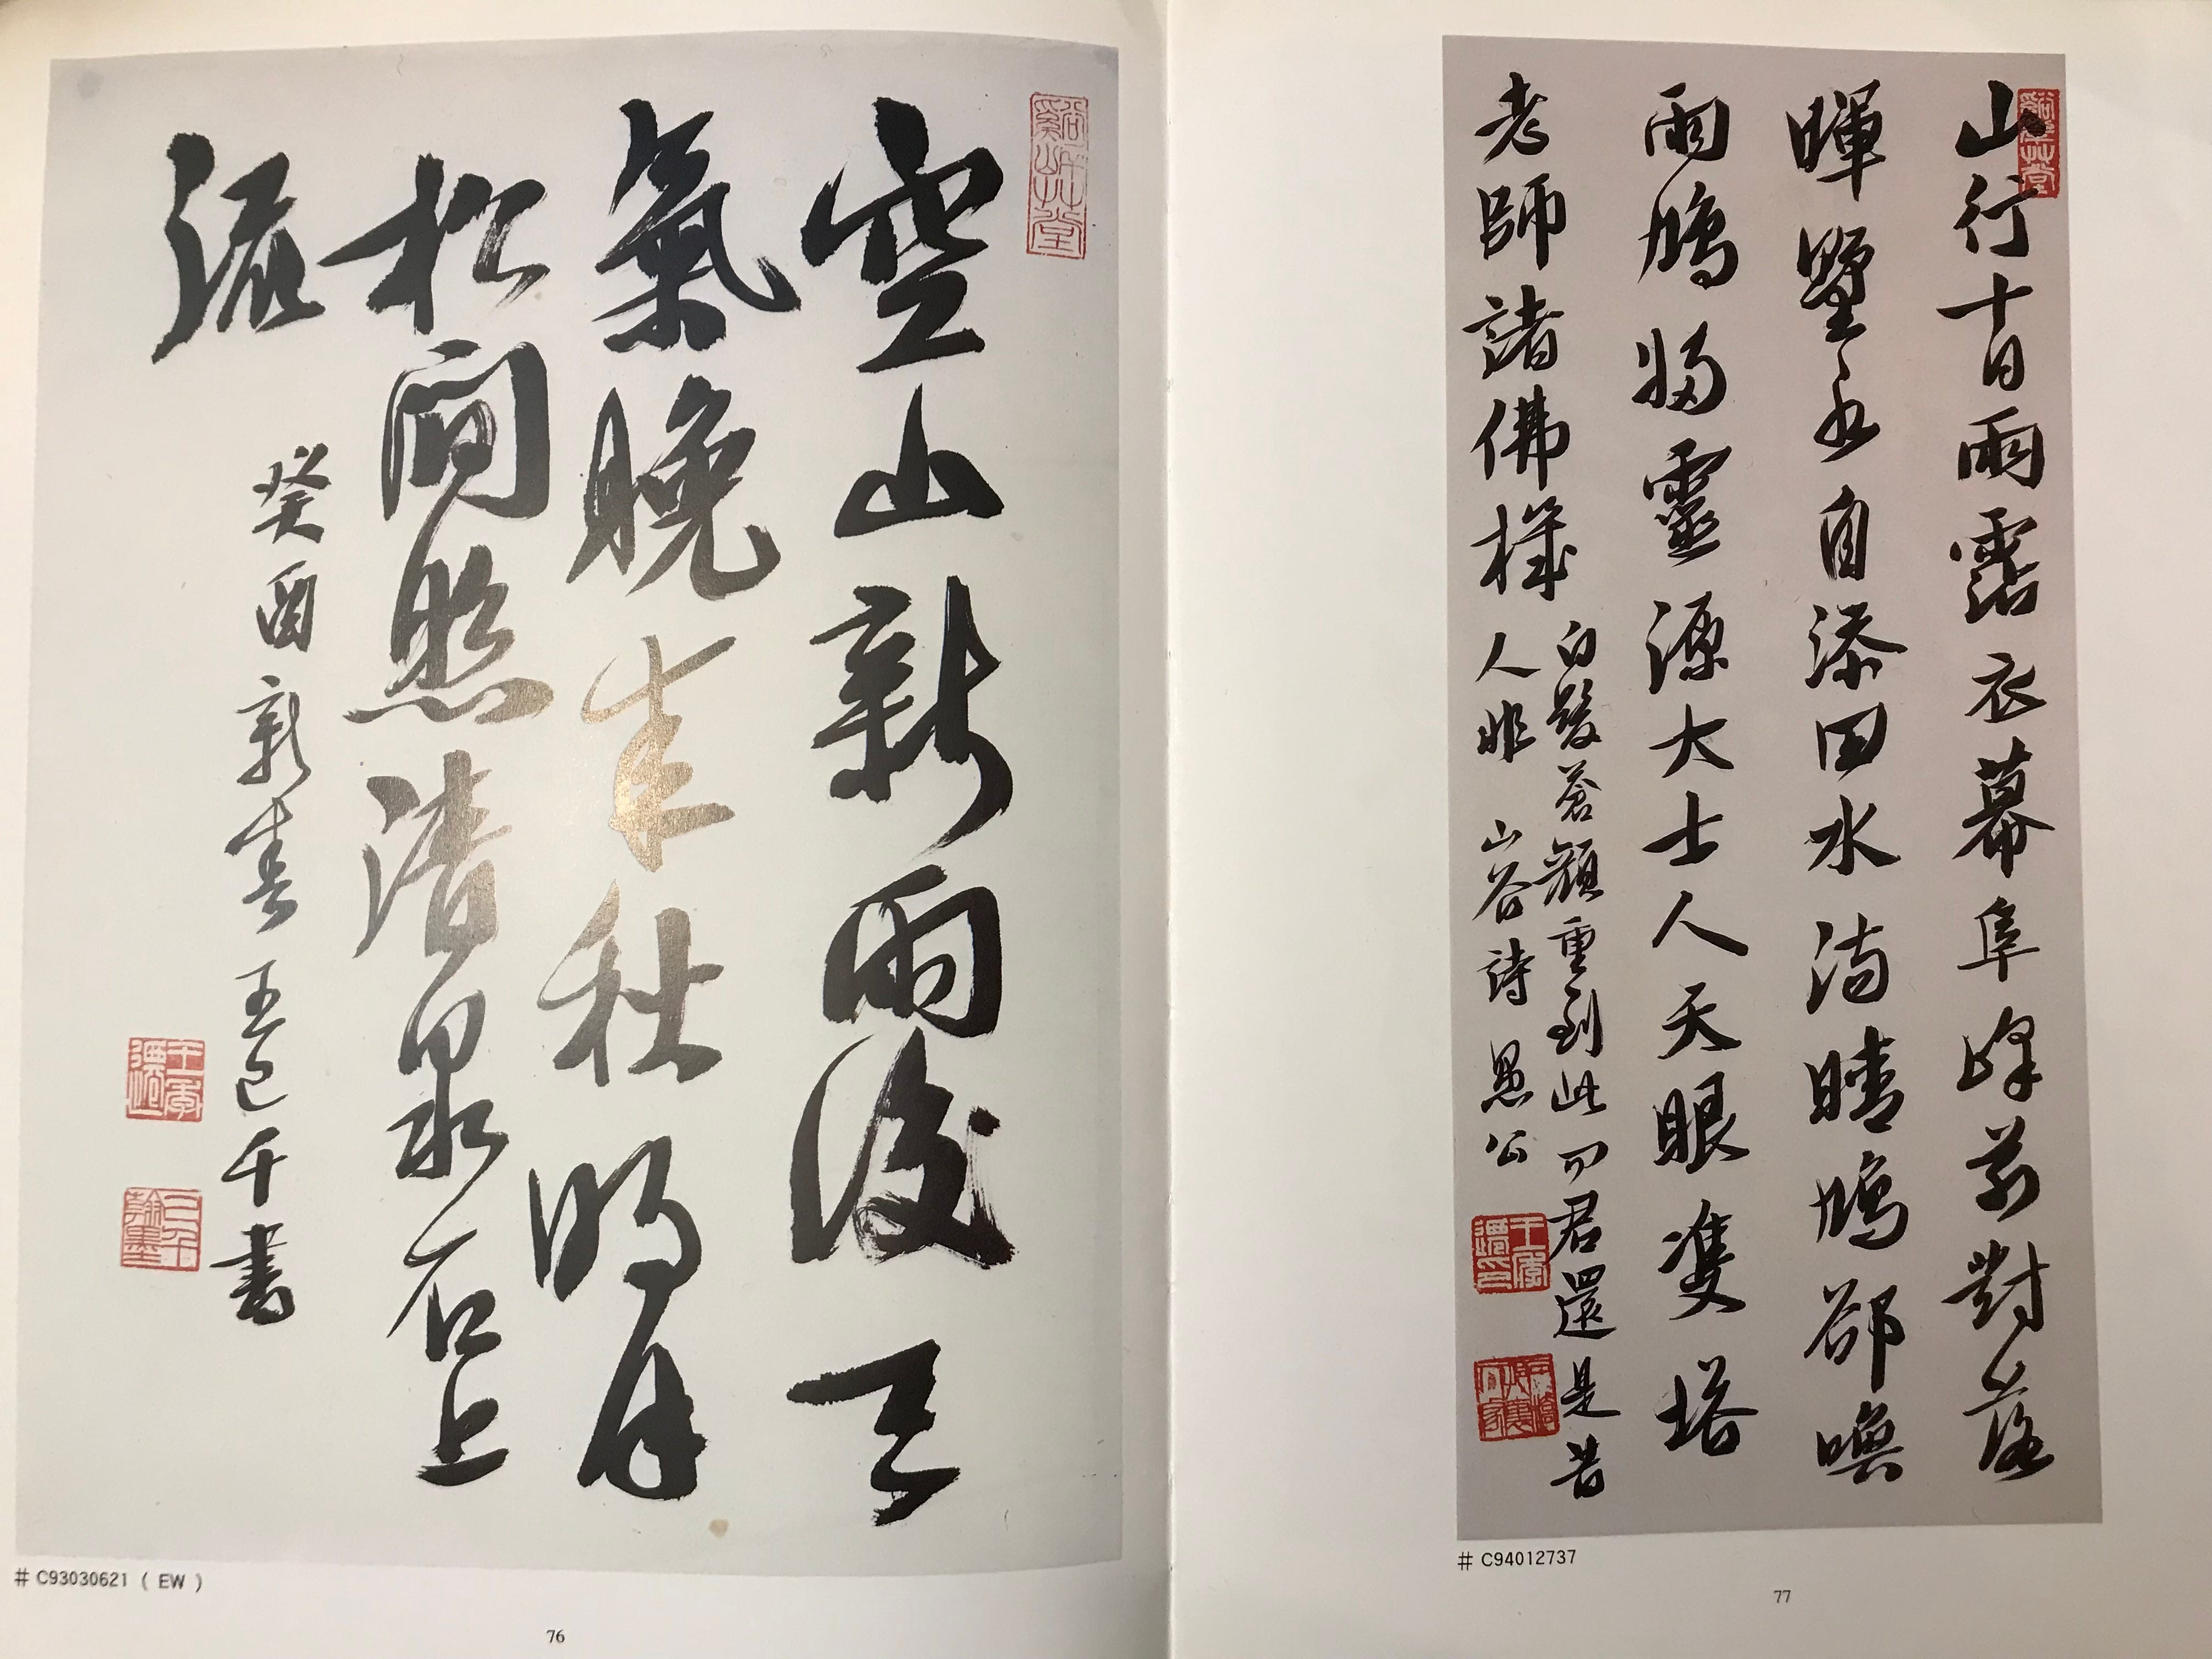 空山新雨後天
氣晚来秋明月
松間照清泉石上
流
癸酉新春王己千書
王季遷印
己千翰墨
# C93030621 ( EW )
76
山行十日雨霑衣幕阜峰前對落
暉野水自添田水滿晴鳩郤喚
雨鳩歸靈源大士人天眼雙塔
老師諸佛機
白髮蒼顏重到此問君還是昔
人非 山谷詩 愚公
王季遷印
# C94012737
77